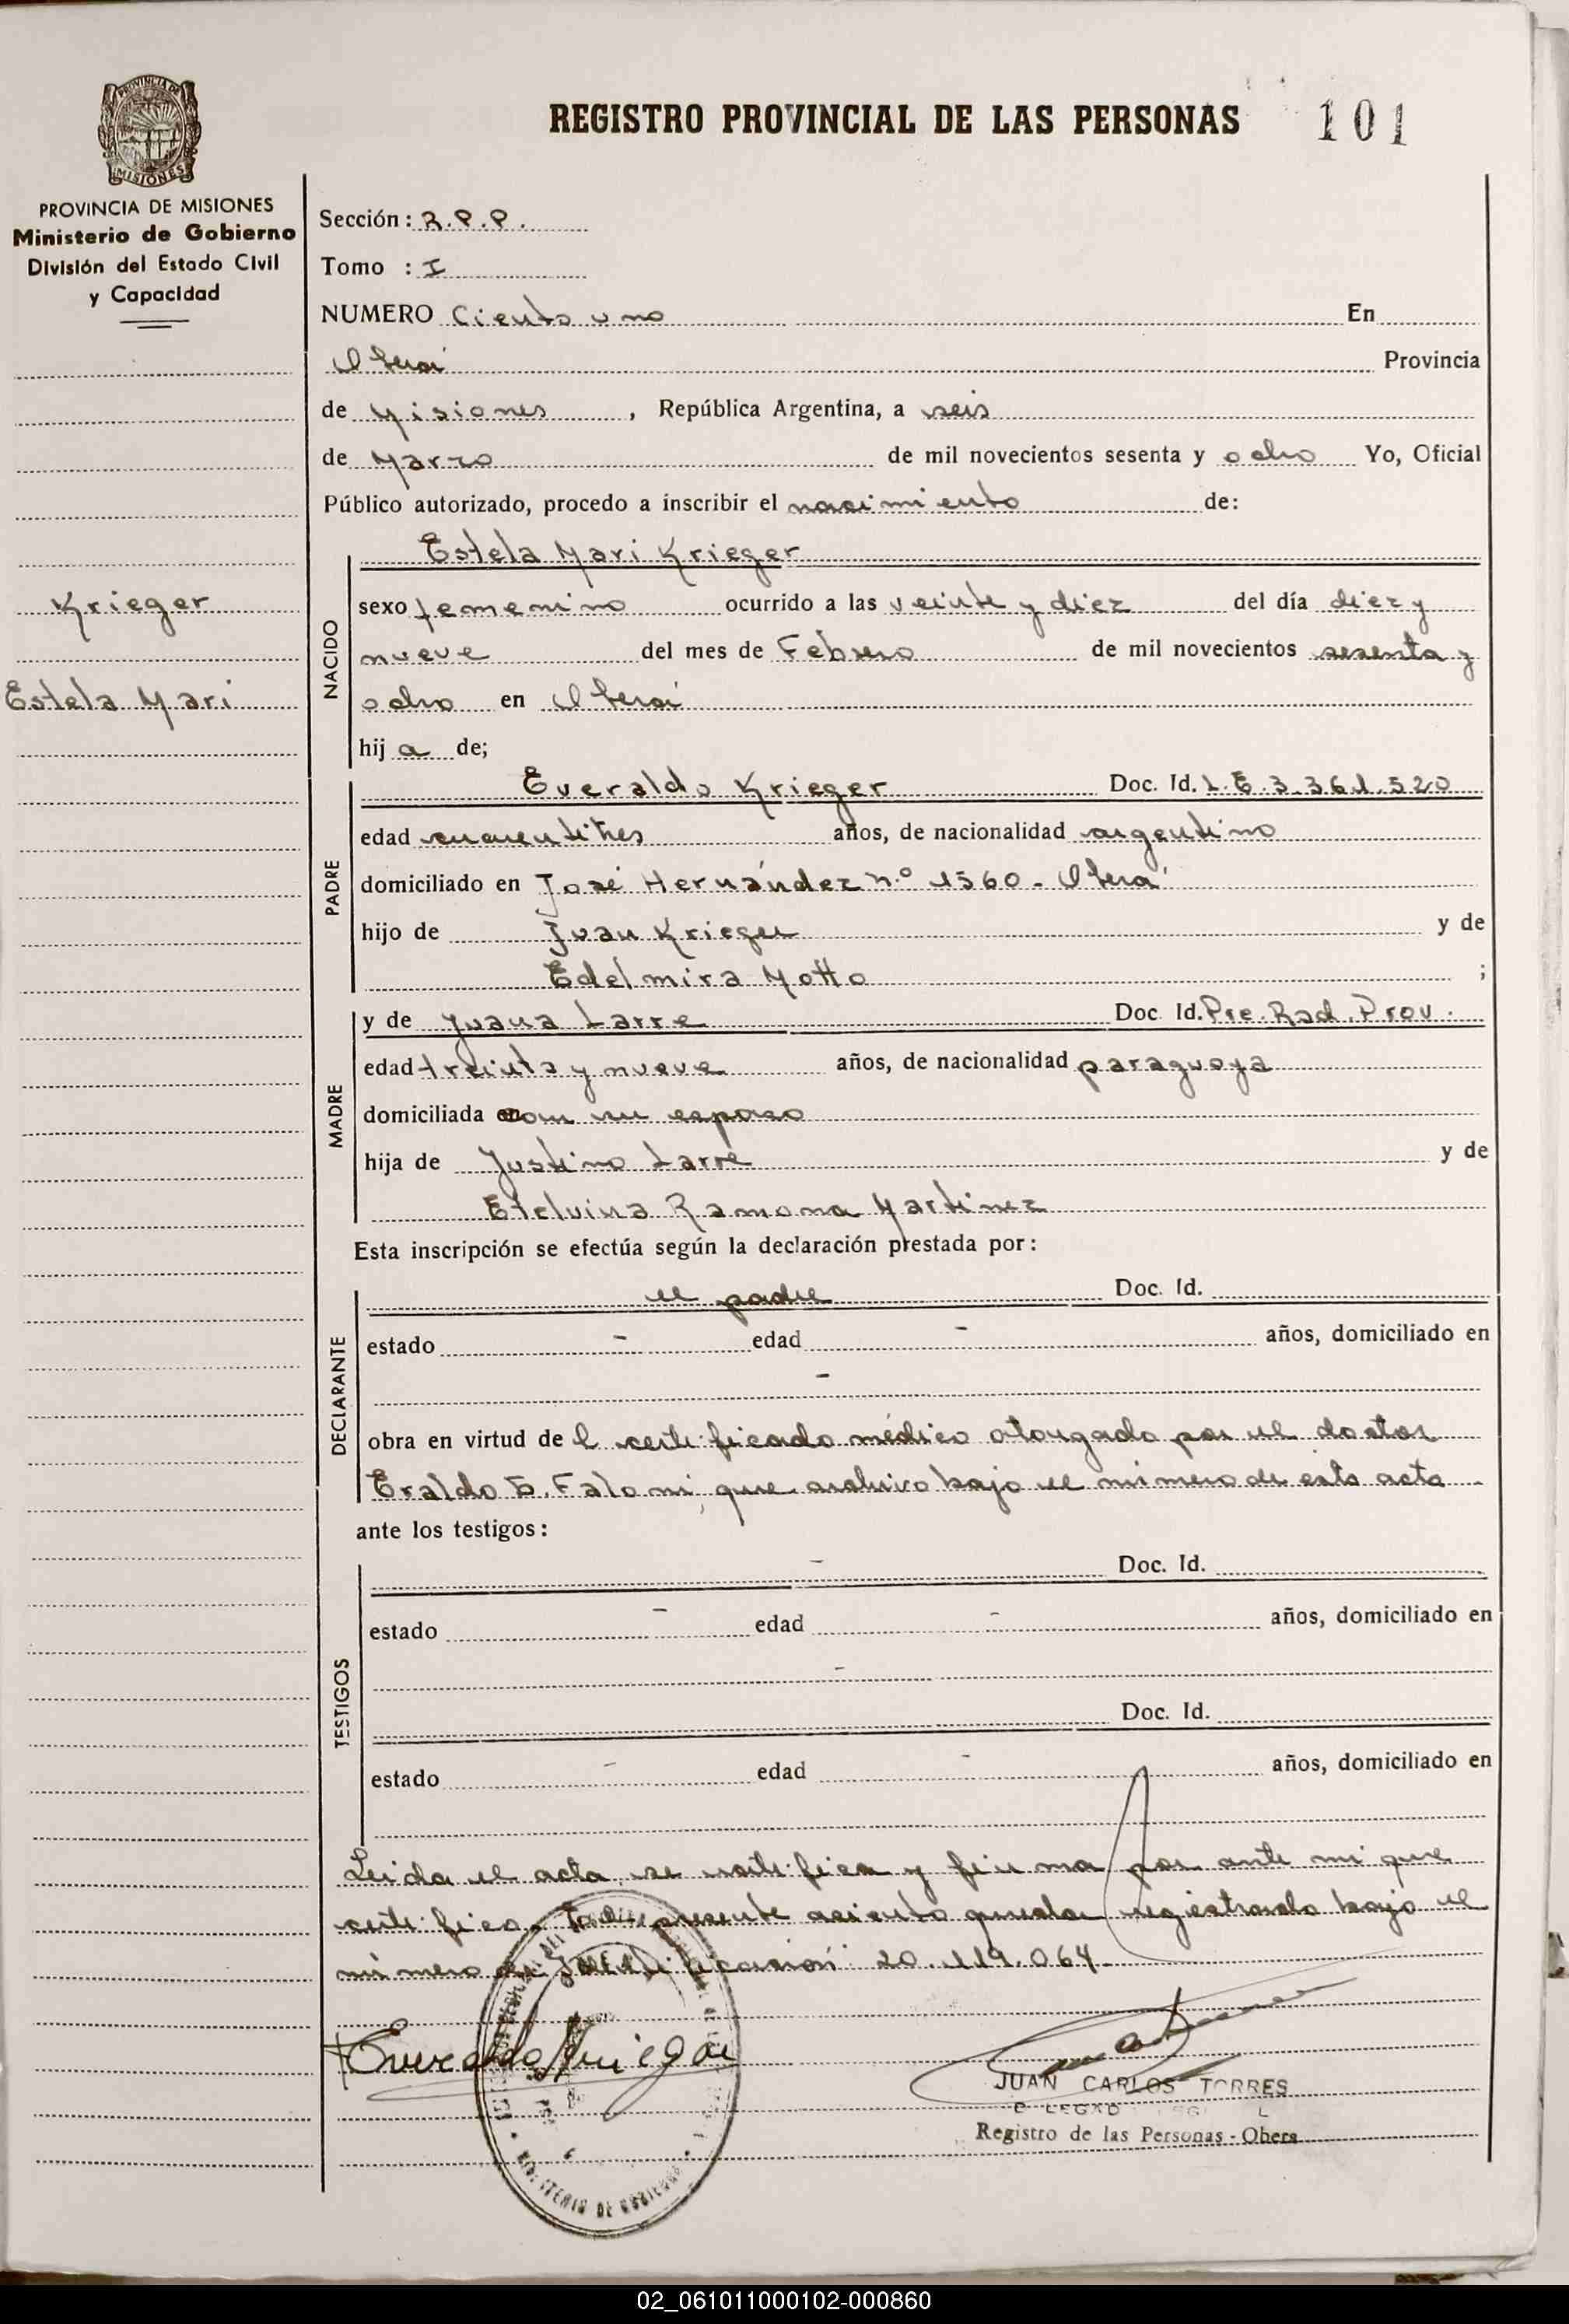 REGISTRO PROVINCIAL DE LAS PERSONAS 101
PROVINCIA DE
MISIONES
PROVINCIA DE MISIONES
Ministerio de Gobierno
División del Estado Civil
y Capacidad
Krieger
Estela Mari
Sección: R.P.P.
Tomo : I
NUMERO Ciento uno En
Oberá Provincia
de Misiones, República Argentina, a seis
de Marzo de mil novecientos sesenta y ocho Yo, Oficial
Público autorizado, procedo a inscribir el nacimiento de:
NACIDO
Estela Mari Krieger
sexo femenino ocurrido a las veinte y diez del día diez y
nueve del mes de Febrero de mil novecientos sesenta y
ocho en Oberá
hij a de;
PADRE
Everaldo Krieger Doc. Id. L.E. 3.361.520
edad cuarentitres años, de nacionalidad argentino
domiciliado en José Hernández n.º 1560 - Oberá
hijo de Juan Krieger y de
Edelmira Motto ;
MADRE
y de Juana Larre Doc. Id. Pre. Rad. Prov.
edad treinta y nueve años, de nacionalidad paraguaya
domiciliada con su esposo
hija de Justino Larre y de
Etelvina Ramona Martinez
Esta inscripción se efectúa según la declaración prestada por:
DECLARANTE
el padre Doc. Id.
estado - edad - años, domiciliado en
-
obra en virtud de l certificado médico otorgado por el doctor
Eraldo E. Falo mi, que archivo bajo el número de esta acta
ante los testigos:
TESTIGOS
- Doc. Id.
estado - edad - años, domiciliado en
-
Doc. Id.
estado - edad - años, domiciliado en
Leida el acta, se ratifica y firma por ante mi que
certifico. presente asiento queda registrado bajo el
número de Identificación: 20.119.064
Everaldo Krieger
JUAN CARLOS TORRES
Registro de las Personas - Obera
MINISTERIO DE GOBIERNO
02_061011000102-000860